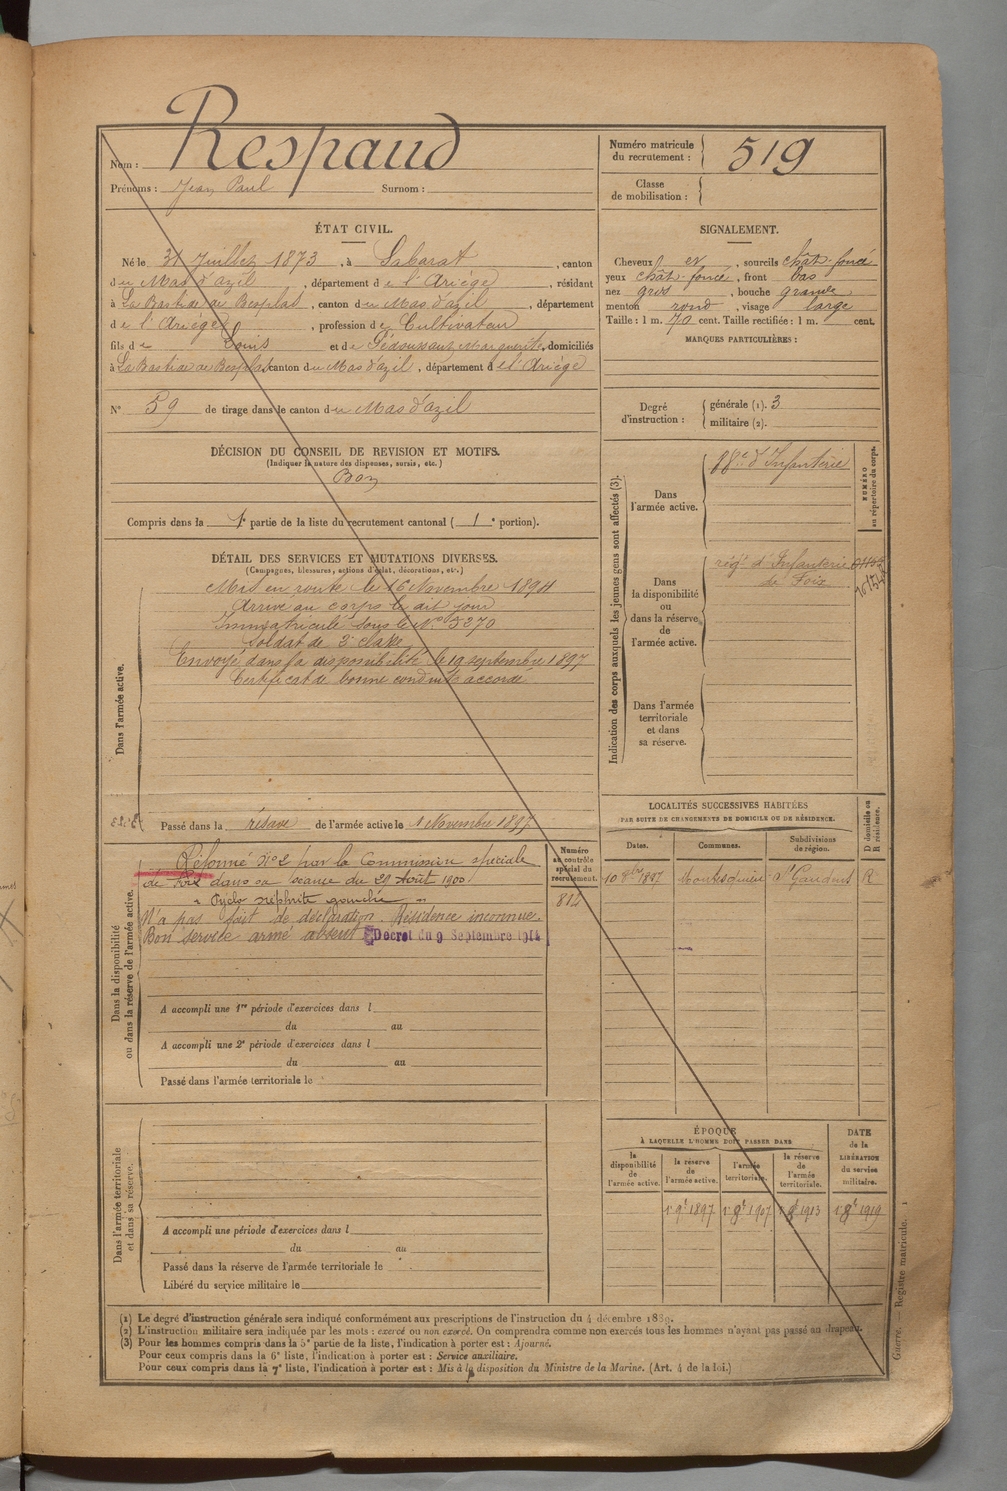 Nom : Respaud
Prénoms : Jean Paul Surnom :
Numéro matricule du recrutement : 519
Classe de mobilisation :
ÉTAT CIVIL.
Né le 31 Juillet 1873, à Sabarat, canton
du Mas d'azil, département de l'Ariége, résidant
à La Bastide de Besplas, canton du Mas d'azil, département
de l'Ariége, profession de Cultivateur
fils de Louis et de Marguerite, domiciliés
à La Bastide de Besplas canton du Mas d'azil, département de l'Ariége
N° 59 de tirage dans le canton du Mas d'azil
SIGNALEMENT.
Cheveux et, sourcils chât-foncé
yeux chât-foncé, front bas
nez gros, bouche grande
menton rond, visage large
Taille : 1 m. 70 cent. Taille rectifiée : 1 m. cent.
MARQUES PARTICULIÈRES :
Degré d'instruction : générale (1). 3
militaire (2).
DÉCISION DU CONSEIL DE REVISION ET MOTIFS.
(Indiquer la nature des dispenses, sursis, etc.)
Bon
Compris dans la 1e partie de la liste du recrutement cantonal (1e portion).
DÉTAIL DES SERVICES ET MUTATIONS DIVERSES.
(Campagnes, blessures, actions d'éclat, décorations, etc.)
Dans l'armée active.
Mis en route le 16 Novembre 1894
Arrivé au corps le dit jour
Immatriculé sous le N° 5270
Soldat de 2e classe
Envoyé dans la disponibilité le 19 septembre 1897
Certificat de bonne conduite accordé
Passé dans la réserve de l'armée active le 1 Novembre 1897
Indication des corps auxquels les jeunes gens sont affectés (3).
NUMÉRO au répertoire du corps.
Dans l'armée active.
88e d'Infanterie
Dans la disponibilité ou dans la réserve de l'armée active.
régt d'Infanterie
de Foix
Dans l'armée territoriale et dans sa réserve.
Dans la disponibilité ou dans la réserve de l'armée active.
Numéro au contrôle spécial du recrutement.
814
Réformé N°2 par la Commission spéciale
de Foix dans sa séance du 29 Août 1900
" Pyélo néphrite gauche "
N'a pas fait de déclaration. Résidence inconnue.
Bon service armé absent Décret du 9 Septembre 1914
A accompli une 1re période d'exercices dans l
du au
A accompli une 2e période d'exercices dans l
du au
Passé dans l'armée territoriale le
LOCALITÉS SUCCESSIVES HABITÉES
PAR SUITE DE CHANGEMENTS DE DOMICILE OU DE RÉSIDENCE.
Dates. Communes. Subdivisions de région. D domicile ou R résidence.
10 8bre 1897 Montesquieu St Gaudens R
Dans l'armée territoriale et dans sa réserve.
A accompli une période d'exercices dans l
du au
Passé dans la réserve de l'armée territoriale le
Libéré du service militaire le
ÉPOQUE
À LAQUELLE L'HOMME DOIT PASSER DANS
la disponibilité de l'armée active. la réserve de l'armée active. l'armée territoriale. la réserve de l'armée territoriale.
DATE de la LIBÉRATION du service militaire.
1er 9e 1897 1er 8e 1907 1er 8e 1913 1er 8e 1919
(1) Le degré d'instruction générale sera indiqué conformément aux prescriptions de l'instruction du 4 décembre 1889.
(2) L'instruction militaire sera indiquée par les mots : exercé ou non exercé. On comprendra comme non exercés tous les hommes n'ayant pas passé au drapeau.
(3) Pour les hommes compris dans la 5e partie de la liste, l'indication à porter est : Ajourné.
Pour ceux compris dans la 6e liste, l'indication à porter est : Service auxiliaire.
Pour ceux compris dans la 7e liste, l'indication à porter est : Mis à la disposition du Ministre de la Marine. (Art. 4 de la loi.)
Guerre. — Registre matricule. 1